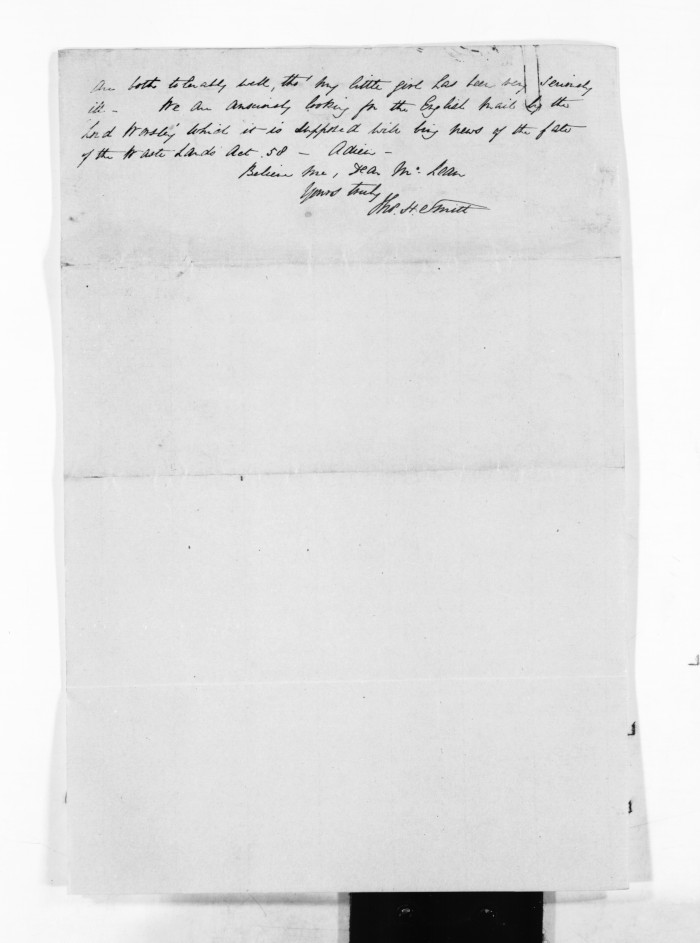 are both tolerably well, tho' my little girl has been very seriously
ill - We are anxiously looking for the English mail by the
Lord Worsley which it is supposed will bring news of the fate
of the Waste Lands Act. 58 - Adieu -
Believe me, Dear Mc. Lean
Yours truly
Tho. H. Smith